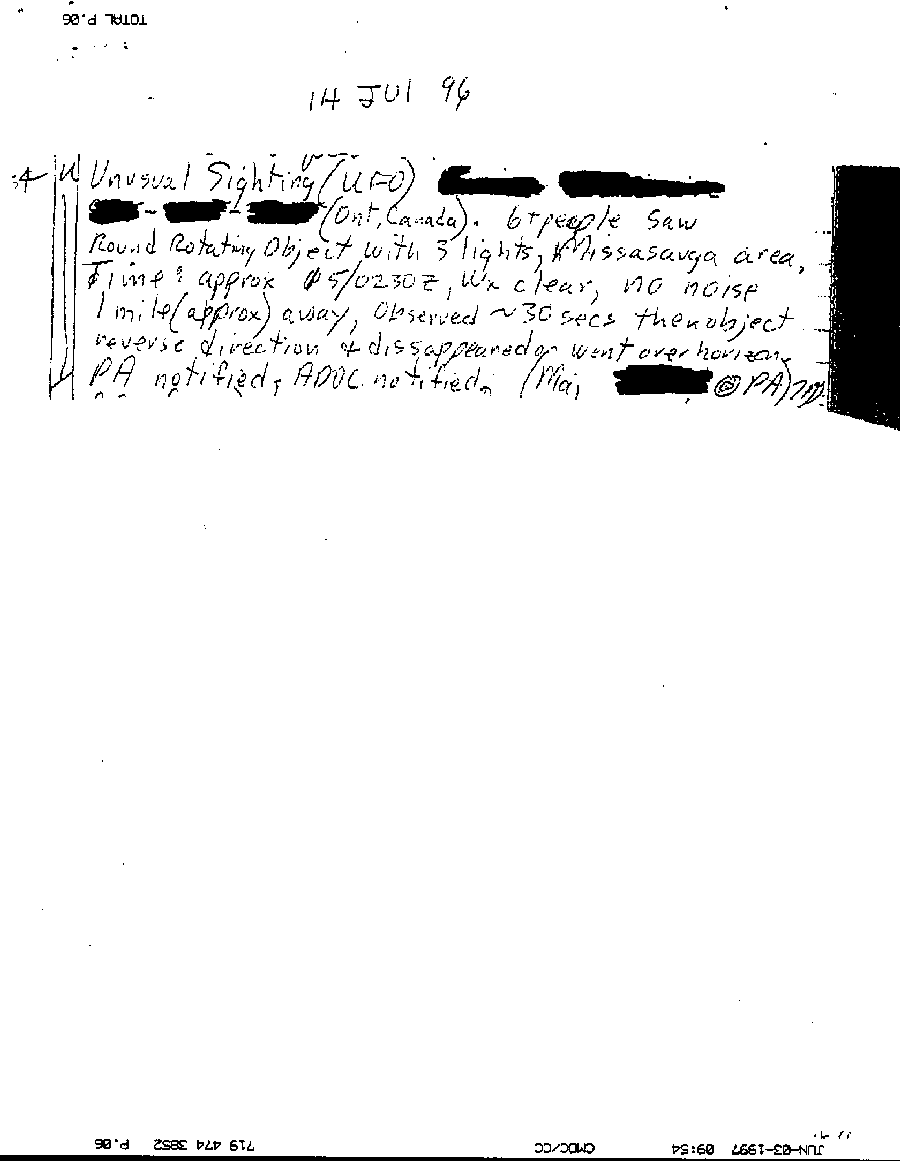 TOTAL P.06
14 JUl 96
Unusual Sighting (UFO)
(Ont, Canada). 6+ people saw
Round Rotating Object with 3 lights, Missasauga area,
Time: approx Ø5/0230Z, Wx clear, no noise
1 mile (approx) away, Observed ~30 secs then object
reverse direction & dissappeared or went over horizon,
PA notified, ADOC notified. (Maj @ PA)
JUN-03-1997 09:54 CMOC/CC 719 474 3852 P.06